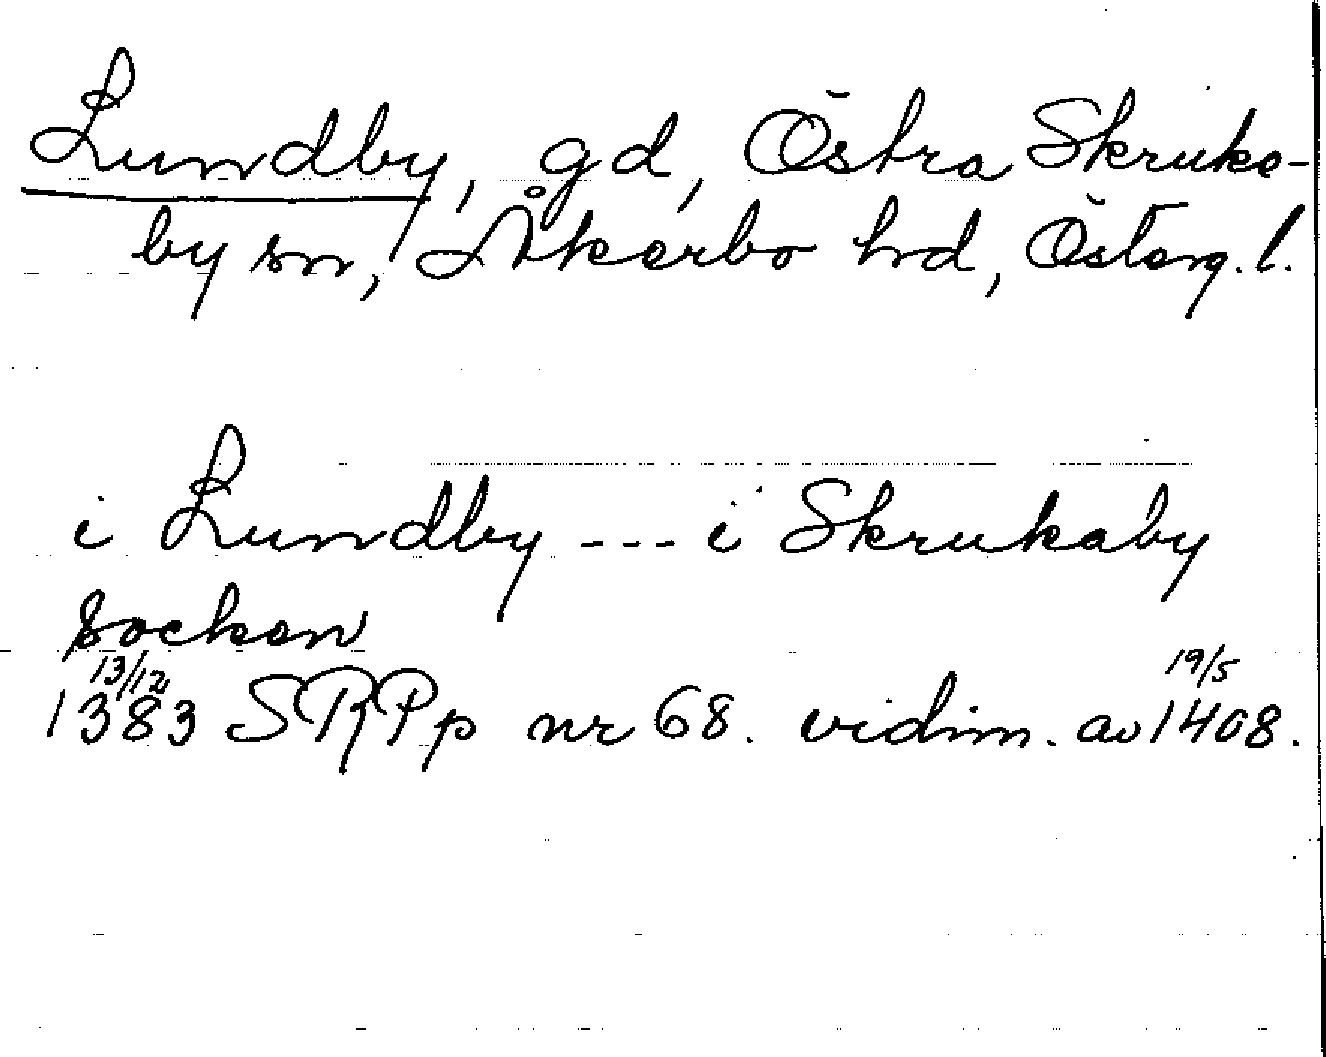 Lundby, gd, Östra Skruke-
by sn, Åkerbo hd, Österg. l.
i Lundby --- i Skrukaby
socken
13/12 19/5
1383 SRPp nr 68. vidim. av 1408.